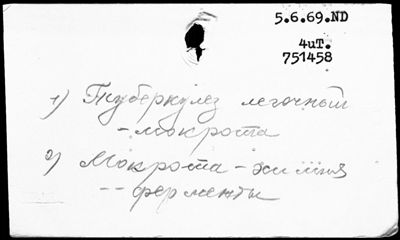 5.6.69.ND
4иТ.
751458
1) Туберкулез легочный
- мокрота
2) Мокрота - химия
-- ферменты